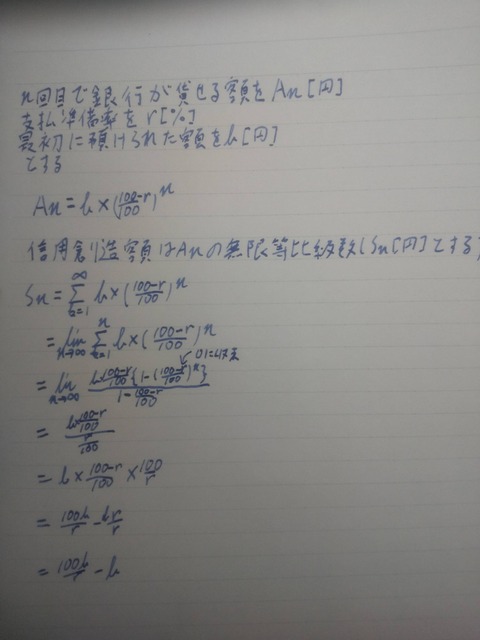 n回目で銀行が貸せる額をAn[円]
支払準備率をr[%]
最初に預けられた額をb[円]
とする
An = b × (100-r/100)^n
信用創造額はAnの無限等比級数(Sn[円]とする)
Sn = ∑_{k=1}^{∞} b × (100-r/100)^n
= lim_{n→∞} ∑_{k=1}^{n} b × (100-r/100)^n
= lim_{n→∞} b×100-r/100 {1-(100-r/100)^n} / 1-100-r/100 ↙0に収束
= b×100-r/100 / r/100
= b × 100-r/100 × 100/r
= 100b/r - br/r
= 100b/r - b